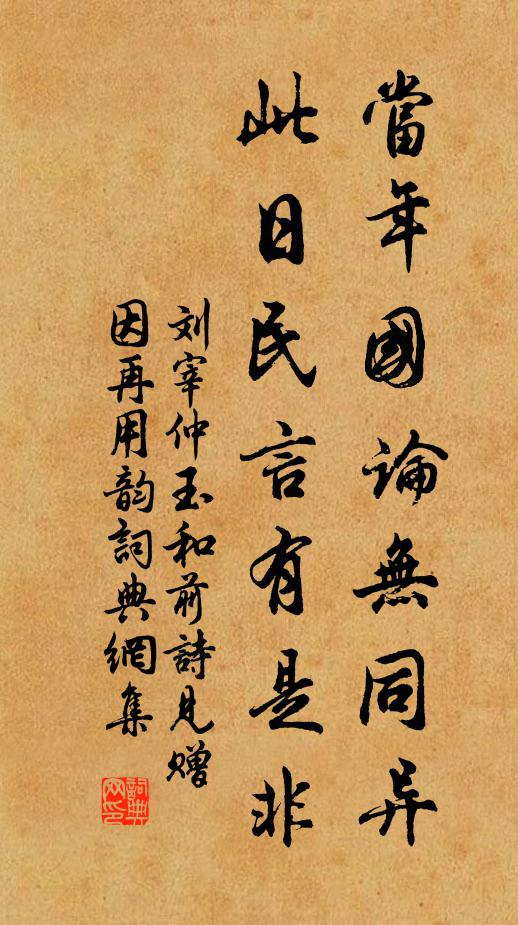 當年國論無同异
此日民言有是非
刘宰仲玉和前詩見贈
因再用韵詞典網集
詞典网印